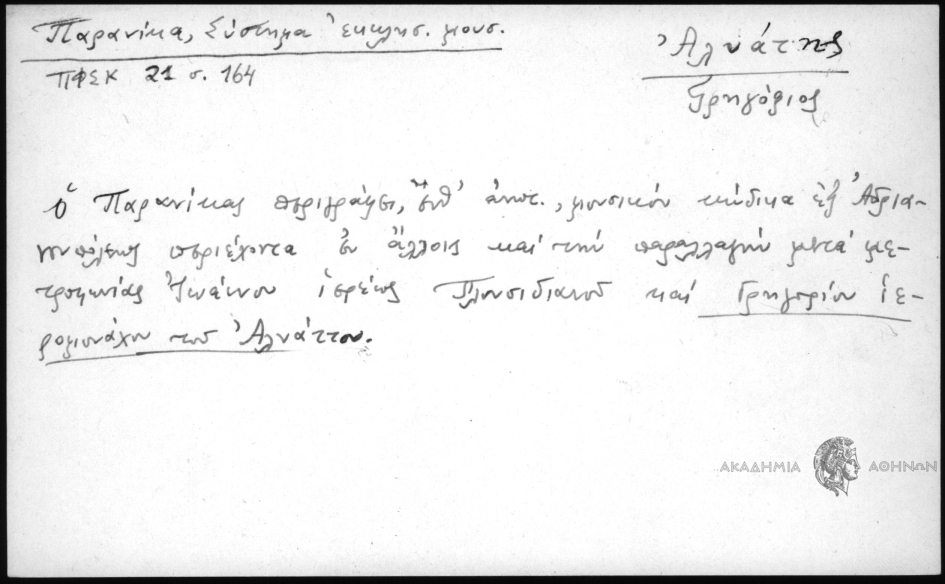 Παρανίκα, Σύστημα ἐκκλησ. μουσ.
ΠΦΣΚ 21 σ. 164
Ἀλυάτης
Γρηγόριος
ὁ Παρανίκας περιγράφει, ἔνθ' ἀνωτ., μουσικόν κώδικα ἐξ Ἀδρια-
νουπόλεως περιέχοντα ἐν ἄλλοις καί τήν παραλλαγήν μετά με-
τροφωνίας Ἰωάννου ἱερέως Πλουσιδιανοῦ καί Γρηγορίου ἱε-
ρομονάχου τοῦ Ἀλυάττου.
ΑΚΑΔΗΜΙΑ ΑΘΗΝΩΝ